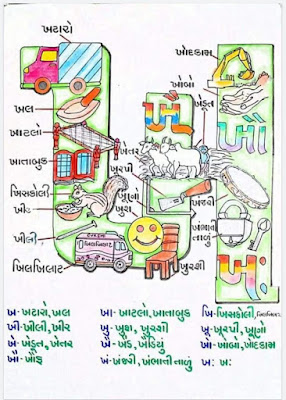 ખટારો
ખોદકામ
ખોબો
ખેડૂત
ખલ
ખાટલો
ખાતાબુક
ખેતર
ખુરપી
ખિસકોલી
ખીર
ખૂણો
ખુશ
ખંજરી
ખંભાતી
તાળું
ખીલી
ખિલખિલાટ
ખુરશી
ખૌ
ખં
ખ - ખટારો, ખલ
ખા - ખાટલો, ખાતાબુક
ખિ - ખિસકોલી,
ખી - ખીલી, ખીર
ખુ - ખુશ, ખુરશી
ખૂ - ખૂરપી, ખૂણો
ખે - ખેડૂત, ખેતર
ખો - ખોબો, ખોદકામ
ખૌ - ખૌફ
ખં - ખંજરી, ખંભાતી તાળું
ખઃ ખઃ